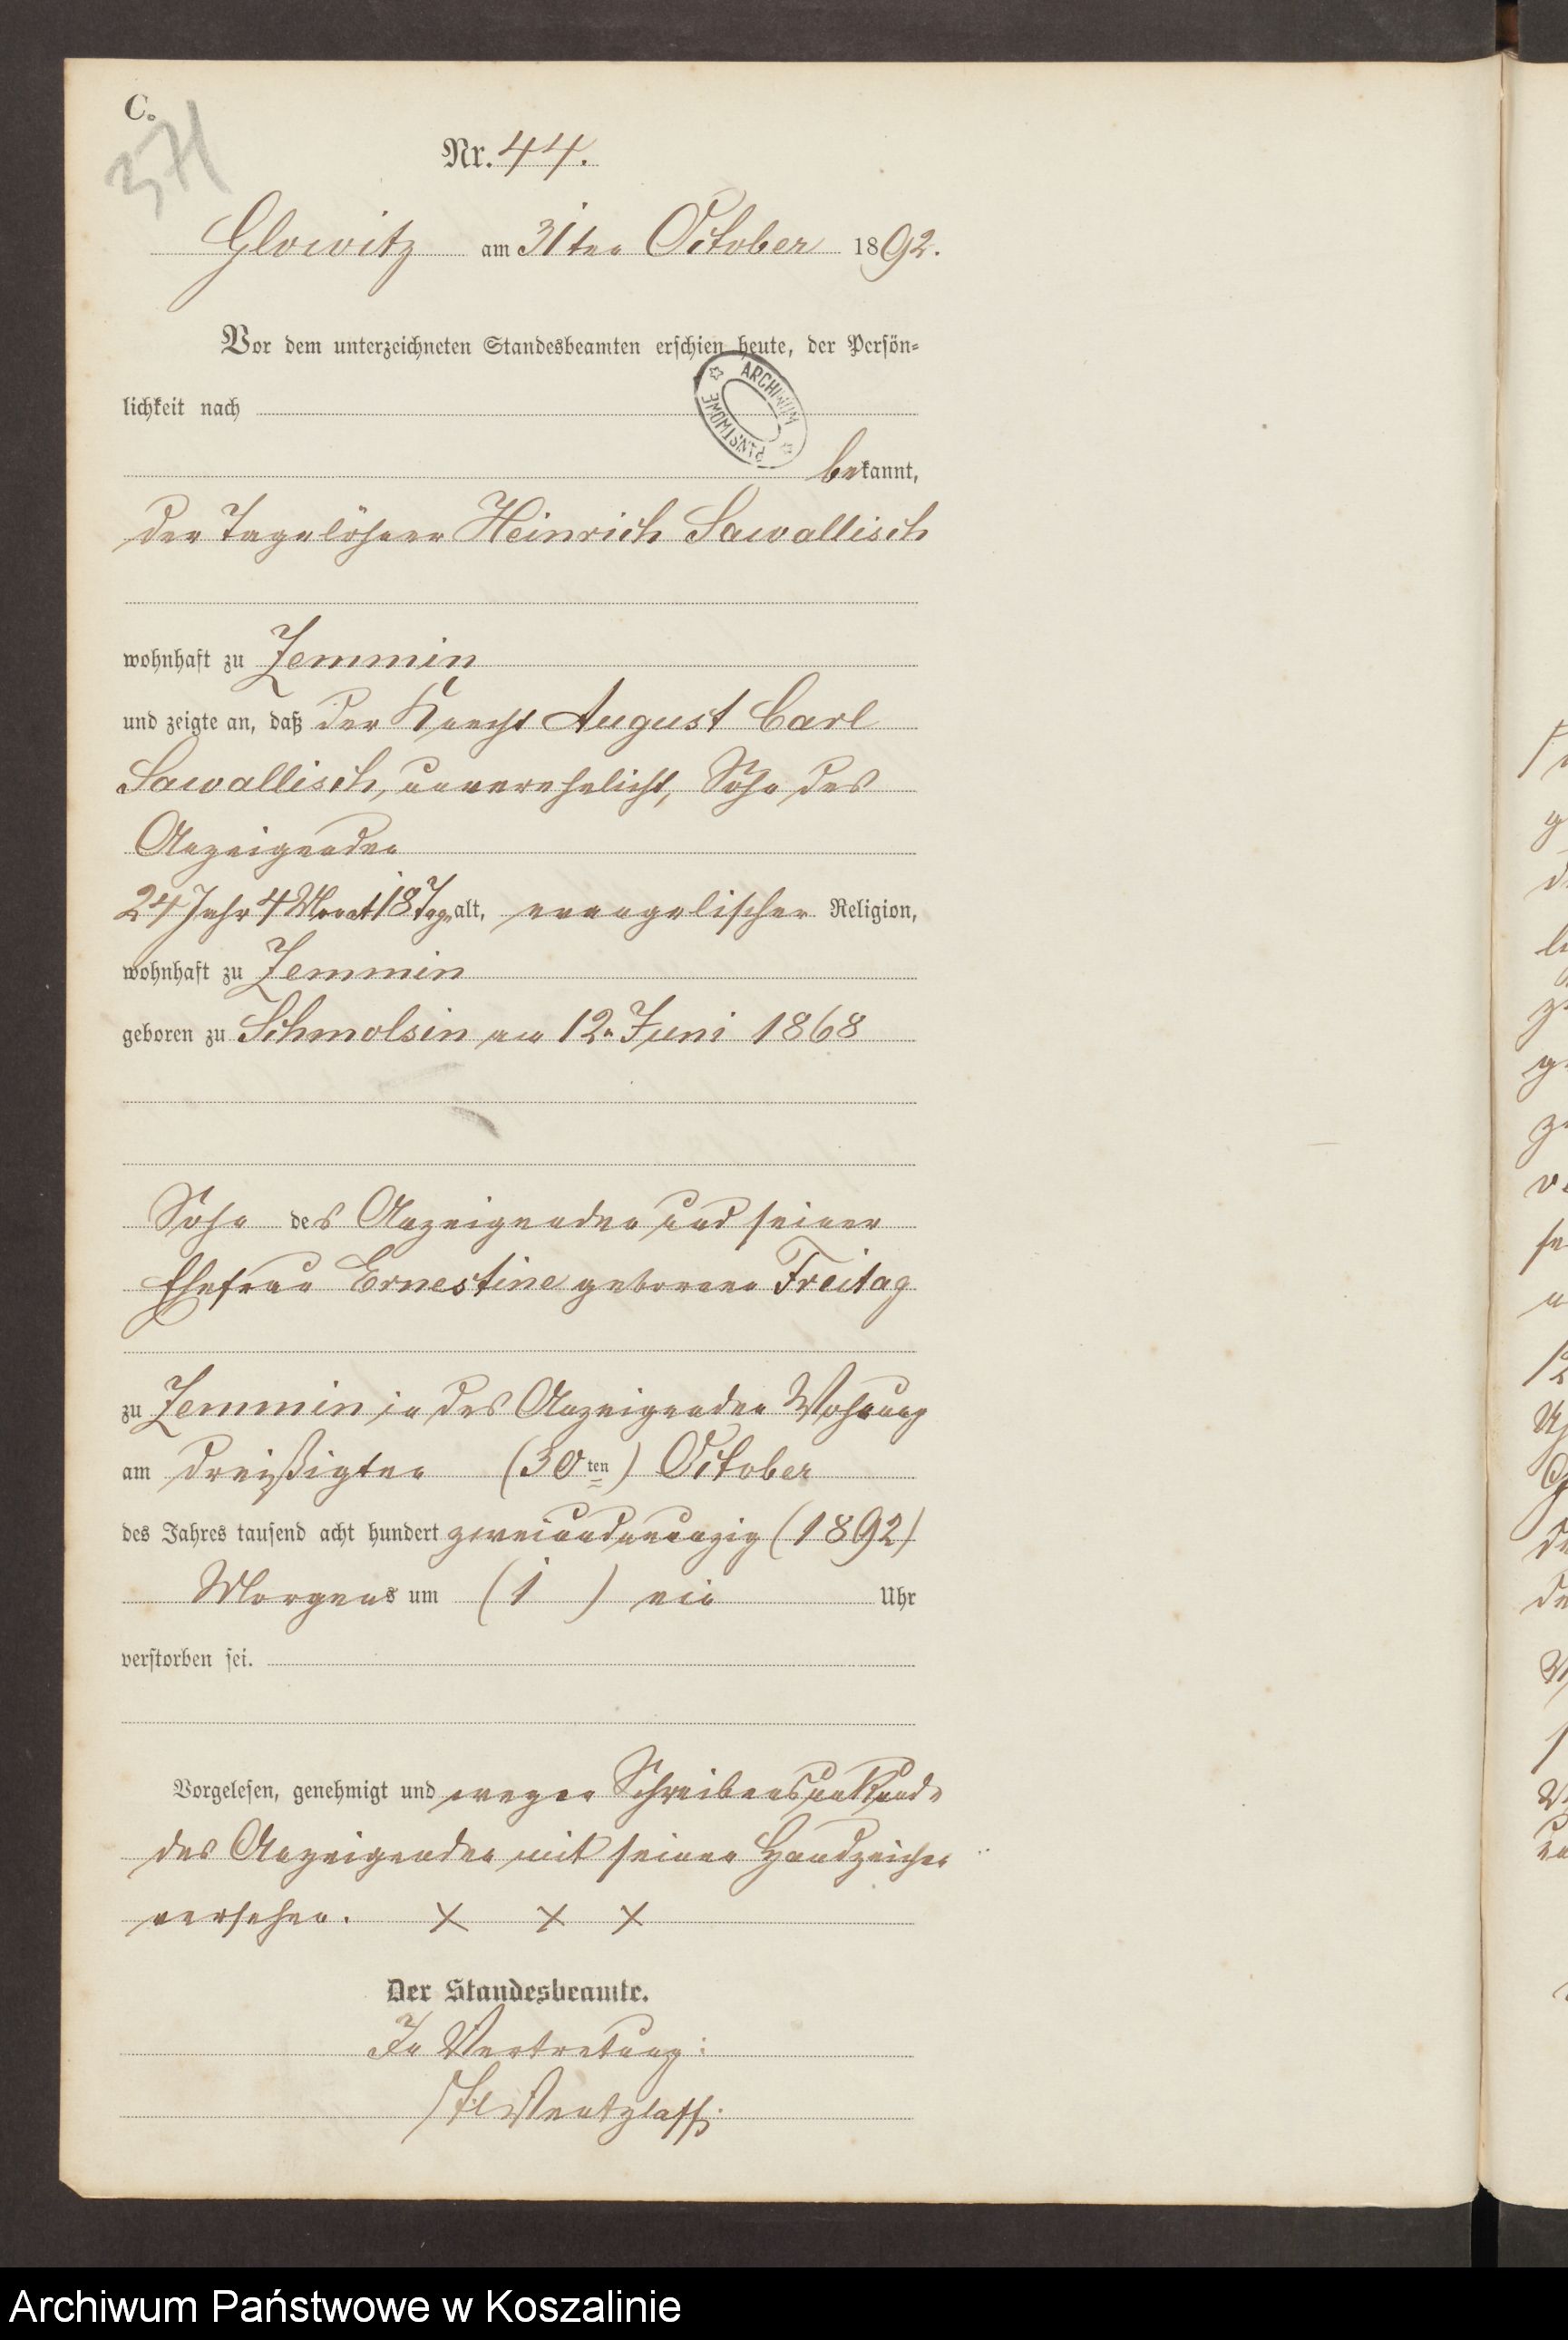 C.
371
Nr. 44.
Glowitz am 31ten October 1892.
Vor dem unterzeichneten Standesbeamten erschien heute, der Persön-
lichkeit nach
ARCHIWUM PAŃSTWOWE
bekannt,
der Tagelöhner Heinrich Sawallisch
wohnhaft zu Zemmin
und zeigte an, daß der Knecht August Carl
Sawallisch, unverehelicht, Sohn des
Anzeigenden
24 Jahr 4 Monat 18 Tage alt, evangelischer Religion,
wohnhaft zu Zemmin
geboren zu Schmolsin am 12n Juni 1868
Sohn des Anzeigenden und seiner
Ehefrau Ernestine geborene Freitag
zu Zemmin in des Anzeigenden Wohnung
am dreißigten (30ten) October
des Jahres tausend acht hundert zweiundneunzig (1892)
Morgens um (1) ein Uhr
verstorben sei.
Vorgelesen, genehmigt und wegen Schreibensunkunde
des Anzeigenden mit seinen Handzeichen
versehen. X X X
Der Standesbeamte.
In Vertretung:
Wentzlaff.
Archiwum Państwowe w Koszalinie